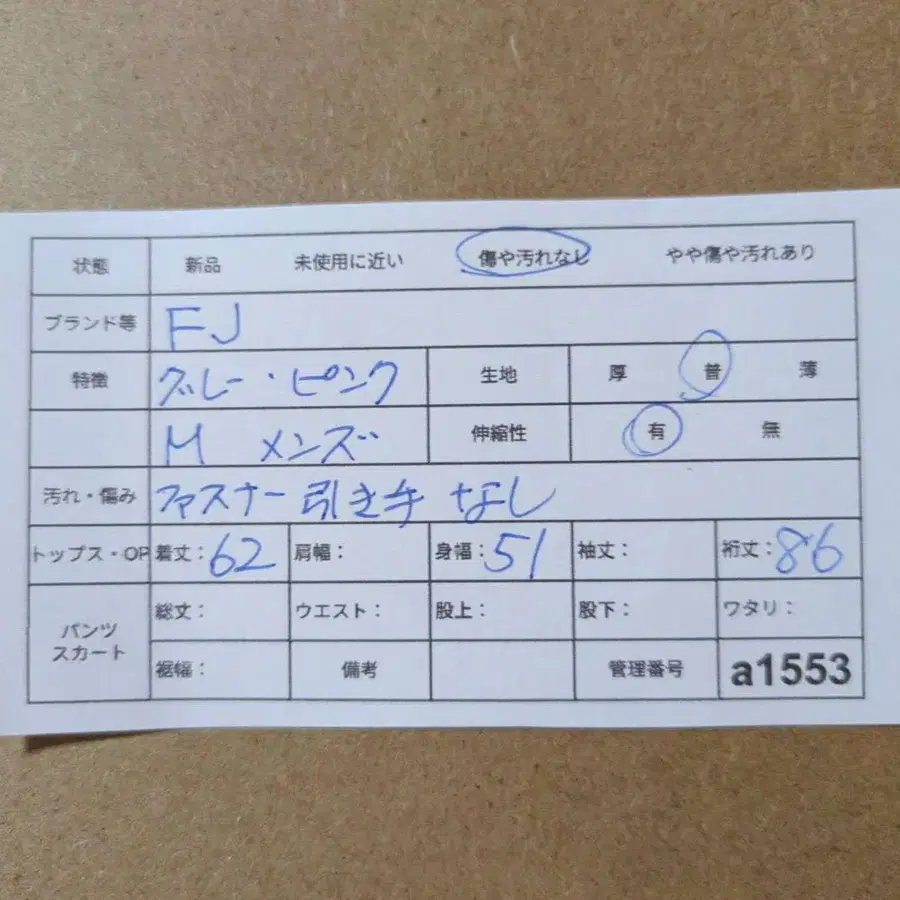 状態 新品 未使用に近い 傷や汚れなし やや傷や汚れあり
ブランド等 FJ
特徴 グレー・ピンク 生地 厚 普 薄
M メンズ 伸縮性 有 無
汚れ・傷み ファスナー引き手 なし
トップス・OP 着丈：62 肩幅： 身幅：51 袖丈： 裄丈：86
パンツ スカート 総丈： ウエスト： 股上： 股下： ワタリ：
裾幅： 備考 管理番号 a1553